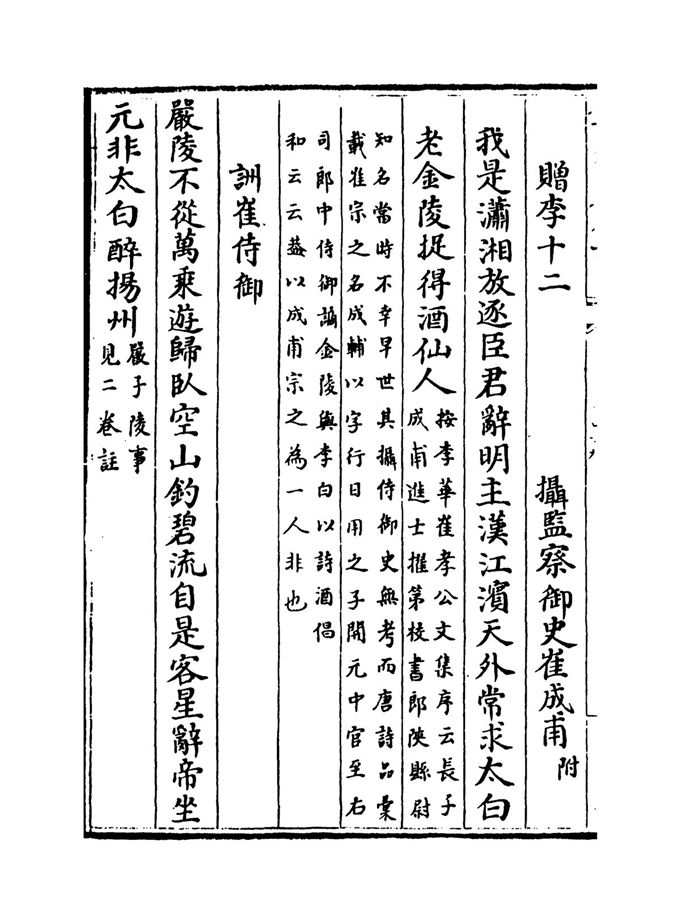 贈李十二　攝監察御史崔成甫附
我是瀟湘放逐臣君辭明主漢江濱天外常求太白
老金陵捉得酒仙人按李華崔孝公文集序云長子
成甫進士擢第校書郎陜縣尉
知名當時不幸早世其攝侍御史無考而唐詩品彙
載崔宗之名成輔以字行日用之子開元中官至右
司郎中侍御謫金陵與李白以詩酒倡
和云云葢以成甫宗之為一人非也
詶崔侍御
嚴陵不從萬乘遊歸臥空山釣碧流自是客星辭帝坐
元非太白醉揚州嚴子陵事
見二卷註